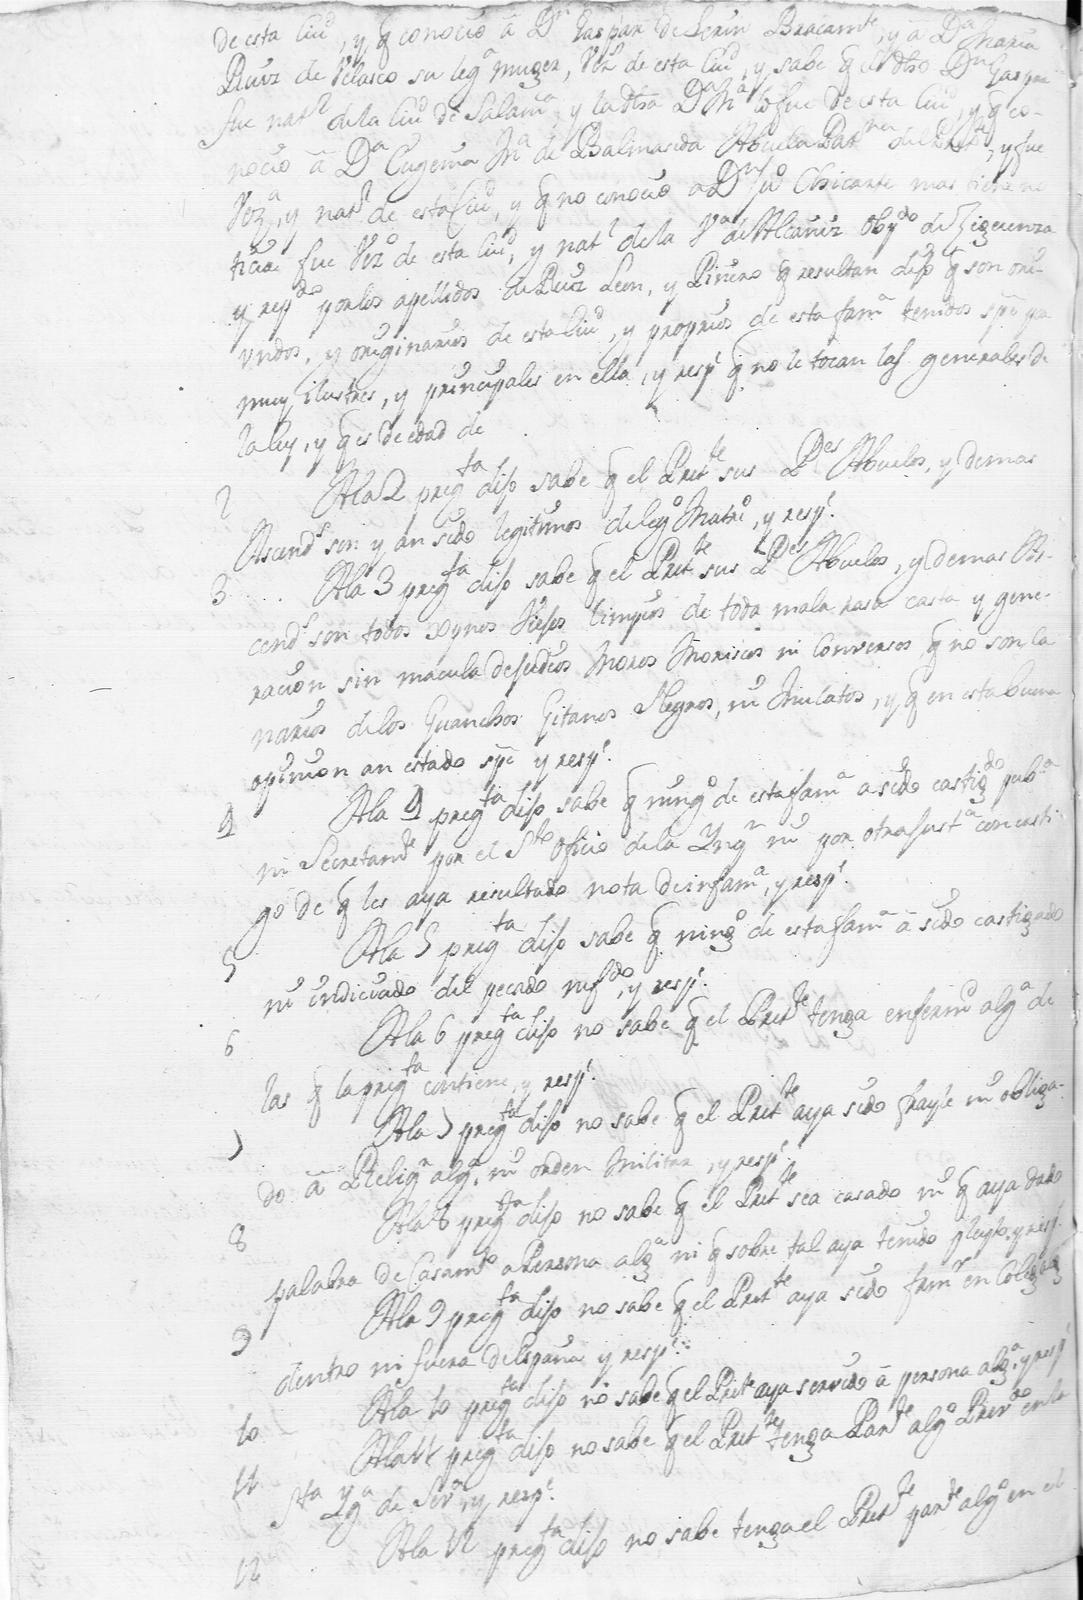 de esta Ciud, y q conocio â Dn Gaspar de Lerin Bracamte, y â Da Maria
Ruiz de Velasco su lega muger, Vez de esta Ciud, y sabe q el dho Dn Gaspar
fue natl de la Ciud de Salama, y la dha Da Ma lo fue de esta Ciud, y q co-
nocio â Da Eugenia Ma de Balmaseda Abuela Patna del Prette, y fue
Veza, y natl de esta Ciud, y q no conocio a Dn Juo Chicarte mas tiene no
ticias fue Vezo de esta Ciud, y natl de la Va de Alcañiz Obpdo de Ziguenza
y respdo por los apellidos de Ruiz Leon, y Piñero q resultan dijo q son ori-
undos, y originarios de esta Ciud, y proprios de esta fama tenidos spe pa
muy ilustres, y principales en ella, y respe q no le tocan las generales de
la ley, y q es de edad de
2 A la 2 pregta dijo sabe q el Prette sus Pes Abuelos, y demas
Ascends son y an sido legitimos de lego Matrio, y respe.
3 A la 3 pregta dijo sabe q el Prette sus Pes Abuelos, y demas As-
cends son todos xpnos viejos limpios de toda mala rasa casta y gene-
racion sin macula de judios Moros Moriscos ni Conversos q no son
narios de los Guanchos Gitanos Negros, ni Mulatos, y q en esta buena
opinion an estado spe y respe.
4 A la 4 pregta dijo sabe q ningo de esta fama a sido castigdo puba
ni Secretamte por el Sto Oficio de la Ynqn ni por otra Justa con casti
go de q les aya resultado nota de infama, y respe.
5 A la 5 pregta dijo sabe q ningo de esta fama â sido castigado
ni indiciado del pecado nefdo, y respe.
6 A la 6 pregta dijo no sabe q el Prette tenga enfermd alga de
las q la pregta contiene, y respe.
7 A la 7 pregta dijo no sabe q el Prette aya sido frayle ni obliga-
do â Relign alga, ni orden Militar, y respe.
8 A la 8 pregta dijo no sabe q el Prette sea casado ni q aya dado
palabra de Casamto a Persona alga ni q sobre tal aya tenido pleyto, y respe.
9 A la 9 pregta dijo no sabe q el Prette aya sido famr en Colego algo
dentro ni fuera de España y respe.
10 A la 10 pregta dijo no sabe q el Prette aya servido â persona alga, y respe
11 A la 11 pregta dijo no sabe q el Prette tenga Parte algo Privdo en la
Sta Yga de Seva, y respe.
12 A la 12 pregta dijo no sabe tenga el Prette parte algo en el